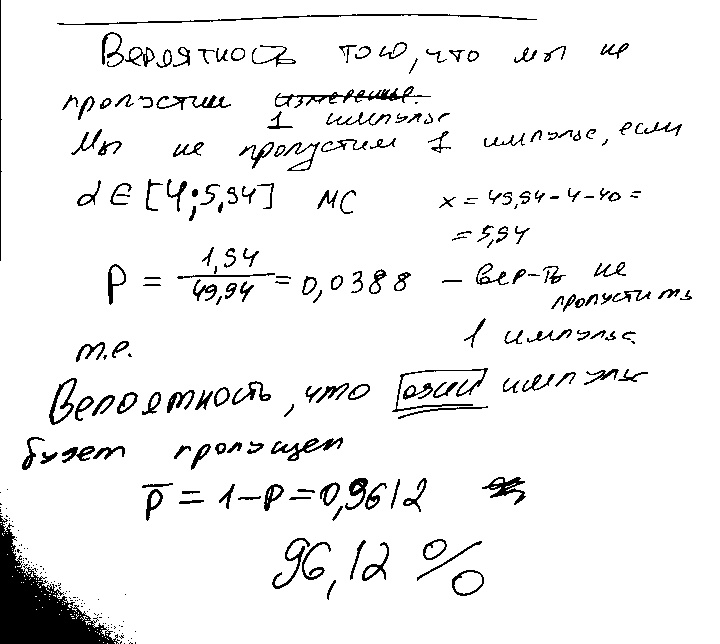 Вероятность того, что мы не
пропустим измерение.
1 импульс
Мы не пропустим 1 импульс, если
α ∈ [4; 5,94] мс
x = 49,94 - 4 - 40 =
= 5,94
P = 1,94 / 49,94 = 0,0388 – вер-ть не
пропустить
1 импульс
т.е.
Вероятность, что один импульс
будет пропущен
P̅ = 1 - P = 0,9612
96,12 %